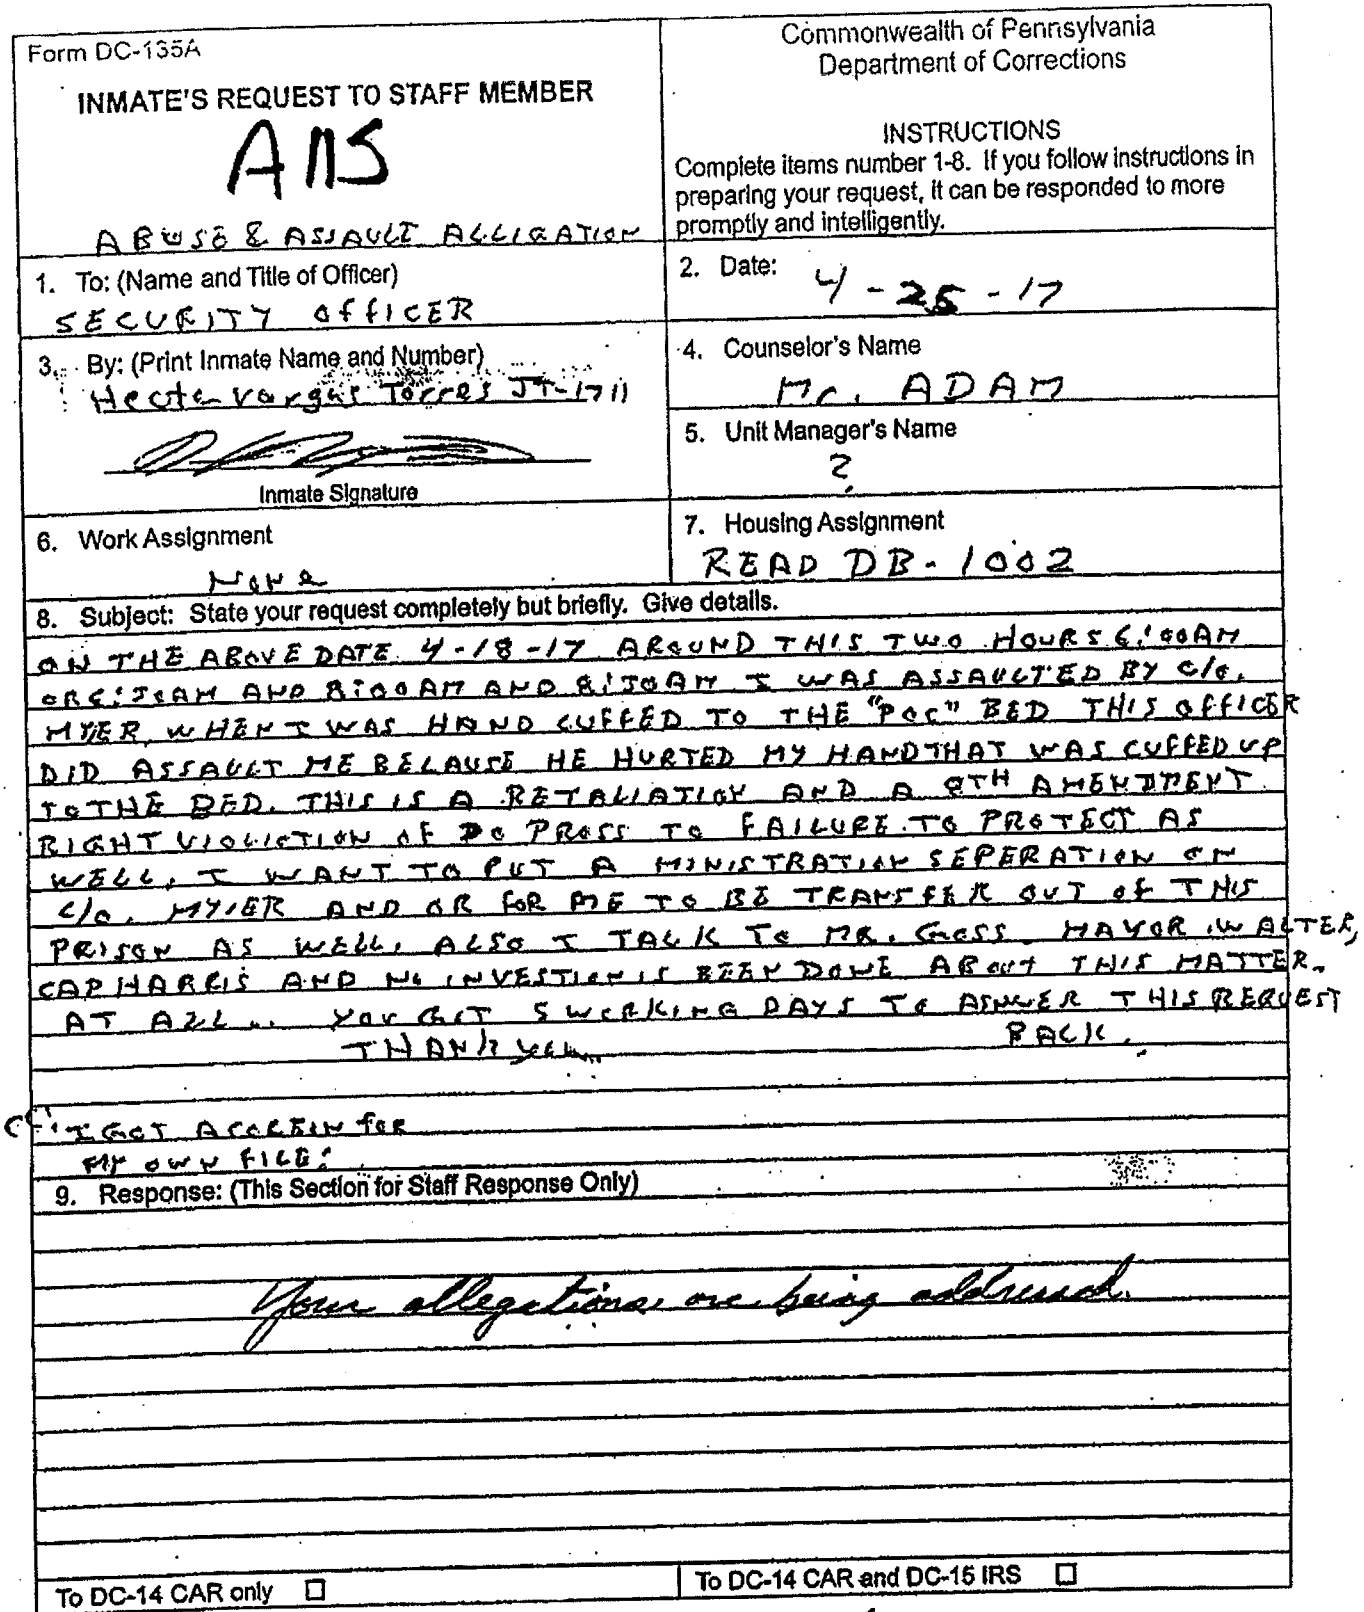 Form DC-135A
INMATE'S REQUEST TO STAFF MEMBER
ANS
ABUSE & ASSAULT ALLIGATION
Commonwealth of Pennsylvania
Department of Corrections
INSTRUCTIONS
Complete items number 1-8. If you follow instructions in
preparing your request, it can be responded to more
promptly and intelligently.
1. To: (Name and Title of Officer)
SECURITY OFFICER
2. Date:
4-25-17
3. By: (Print Inmate Name and Number)
Hector Vargas Torres JT-1711
Inmate Signature
4. Counselor's Name
Mr. ADAM
5. Unit Manager's Name
?
6. Work Assignment
None
7. Housing Assignment
READ DB-1002
8. Subject: State your request completely but briefly. Give details.
ON THE ABOVE DATE 4-18-17 AROUND THIS TWO HOURS 6:00AM
OR 6:30AM AND 8:00AM AND 8:30AM I WAS ASSAULTED BY C/O.
MYER, WHEN I WAS HAND CUFFED TO THE "POC" BED THIS OFFICER
DID ASSAULT ME BECAUSE HE HURTED MY HAND THAT WAS CUFFED UP
TO THE BED. THIS IS A RETALIATION AND A 8TH AMENDMENT
RIGHT VIOLICTION OF DO PROSS TO FAILURE TO PROTECT AS
WELL, I WANT TO PUT A MINISTRATION SEPERATION ON
C/O. MYIER AND OR FOR ME TO BE TRANSFER OUT OF THIS
PRISON AS WELL, ALSO I TALK TO MR. GOSS, MAYOR WALTER,
CAP HARRIS AND NO INVESTION IS BEEN DONE ABOUT THIS MATTER.
AT ALL... YOU GOT 5 WORKING DAYS TO ASNWER THIS REQUEST
THANK YOU... BACK.
CC: I GOT A
MY OWN FILE:
9. Response: (This Section for Staff Response Only)
Your allegations are being addressed.
To DC-14 CAR only
To DC-14 CAR and DC-15 IRS